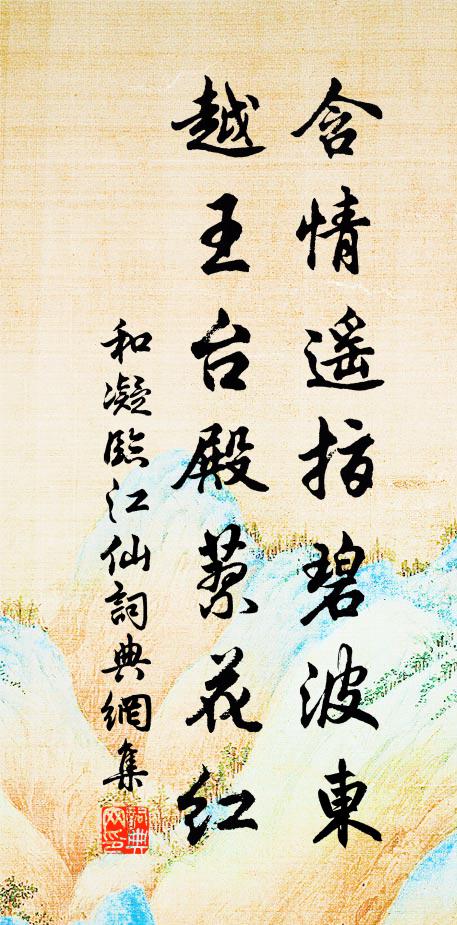 含情遥指碧波東
越王台殿蓼花红
和凝臨江仙詞典網集
詞典
网印